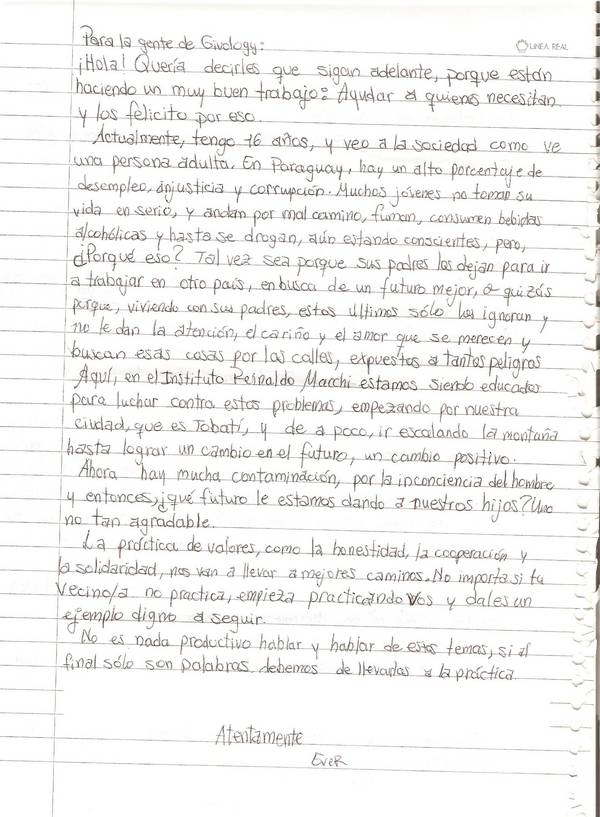 LINEA REAL
Para la gente de Givology:
¡Hola! Quería decirles que sigan adelante, porque están
haciendo un muy buen trabajo: Ayudar a quienes necesitan
y los felicito por eso.
Actualmente, tengo 16 años, y veo a la sociedad como ve
una persona adulta. En Paraguay, hay un alto porcentaje de
desempleo, injusticia y corrupción. Muchos jóvenes no toman su
vida en serio, y andan por mal camino, fuman, consumen bebidas
alcohólicas y hasta se drogan, aún estando conscientes, pero,
¿Porqué eso? Tal vez sea porque sus padres los dejan para ir
a trabajar en otro país, en busca de un futuro mejor, o quizás
porque, viviendo con sus padres, estos últimos sólo los ignoran y
no le dan la atención, el cariño y el amor que se merecen y
buscan esas cosas por las calles, expuestos a tantos peligros
Aquí, en el Instituto Reinaldo Macchi estamos siendo educados
para luchar contra estos problemas, empezando por nuestra
ciudad, que es Tobatí, y de a poco, ir escalando la montaña
hasta lograr un cambio en el futuro, un cambio positivo.
Ahora hay mucha contaminación, por la inconciencia del hombre
y entonces, ¿qué futuro le estamos dando a nuestros hijos? Uno
no tan agradable.
La práctica de valores, como la honestidad, la cooperación y
la solidaridad, nos van a llevar a mejores caminos. No importa si tu
vecino/a no practica, empieza practicando vos y dales un
ejemplo digno a seguir.
No es nada productivo hablar y hablar de estos temas, si al
final sólo son palabras, debemos de llevarlas a la práctica.
Atentamente
Ever